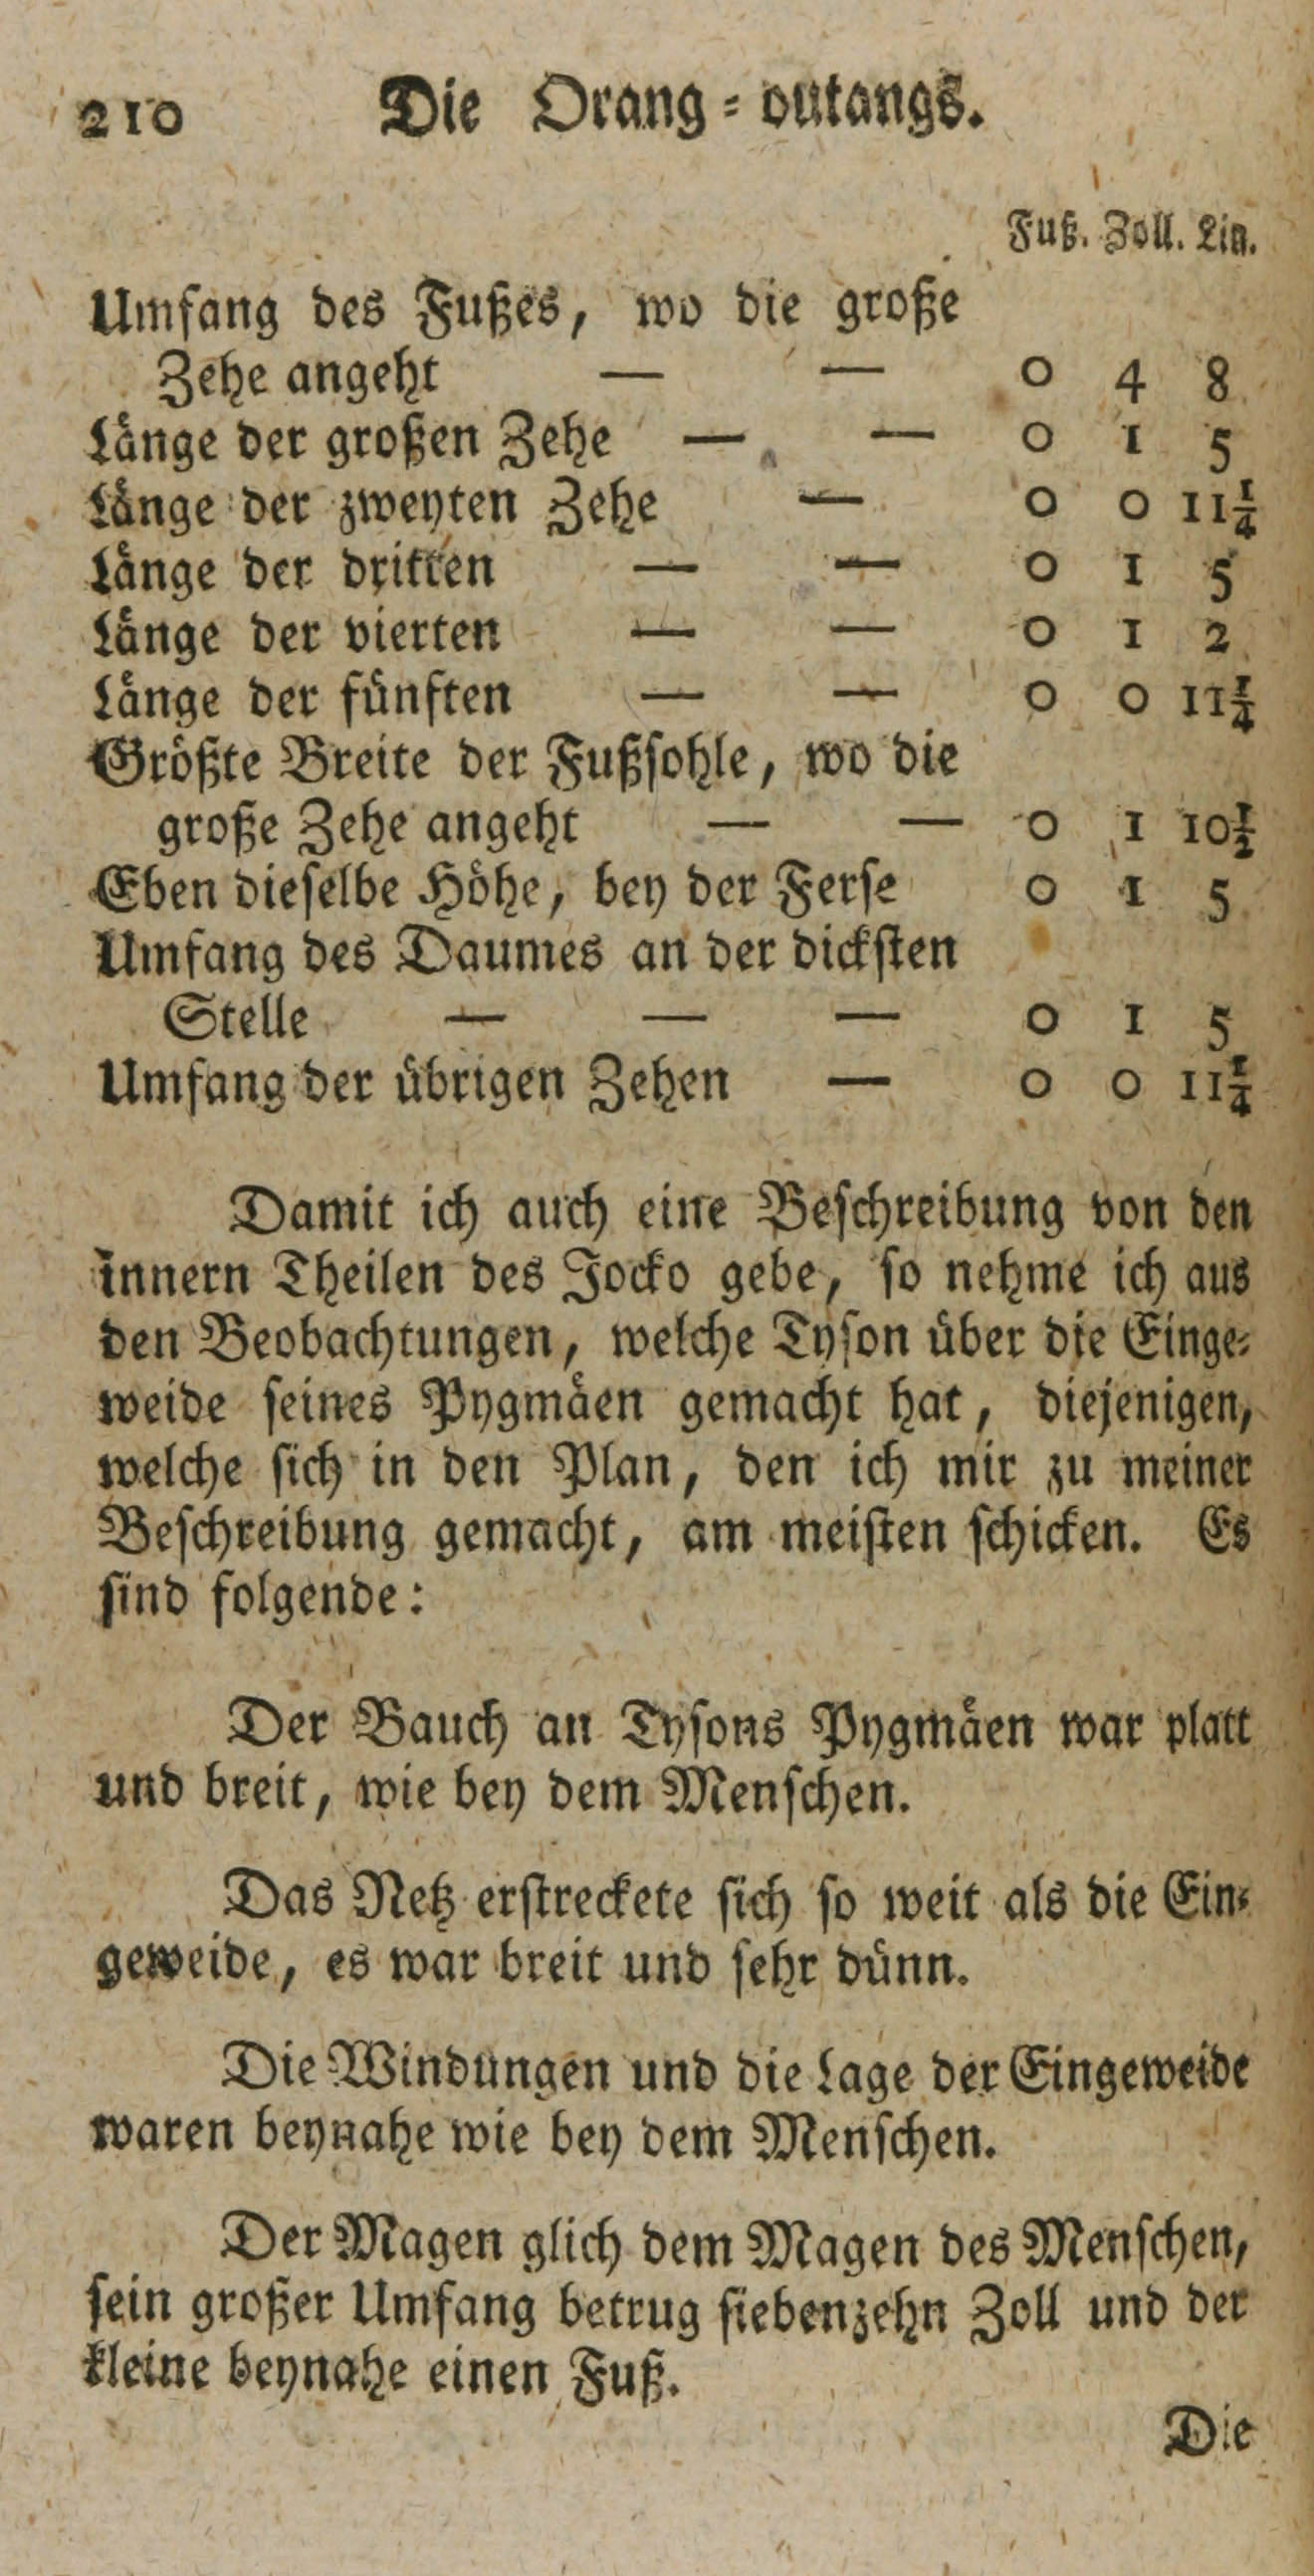 210 Die Orang-outangs.
Fuß. Zoll. Lin.
Umfang des Fußes, wo die große
Zehe angeht — — 0 4 8
Länge der großen Zehe — — 0 1 5
Länge der zweyten Zehe — 0 0 11¼
Länge der dritten — — 0 1 5
Länge der vierten — — 0 1 2
Länge der fünften — — 0 0 11¼
Größte Breite der Fußsohle, wo die
große Zehe angeht — — 0 1 10½
Eben dieselbe Höhe, bey der Ferse 0 1 5
Umfang des Daumes an der dicksten
Stelle — — — 0 1 5
Umfang der übrigen Zehen — 0 0 11¼
Damit ich auch eine Beschreibung von den
innern Theilen des Jocko gebe, so nehme ich aus
den Beobachtungen, welche Tyson über die Einge-
weide seines Pygmäen gemacht hat, diejenigen,
welche sich in den Plan, den ich mir zu meiner
Beschreibung gemacht, am meisten schicken. Es
sind folgende:
Der Bauch an Tysons Pygmäen war platt
und breit, wie bey dem Menschen.
Das Netz erstreckete sich so weit als die Ein-
geweide, es war breit und sehr dünn.
Die Windungen und die Lage der Eingeweide
waren beynahe wie bey dem Menschen.
Der Magen glich dem Magen des Menschen,
sein großer Umfang betrug siebenzehn Zoll und der
kleine beynahe einen Fuß.
Die